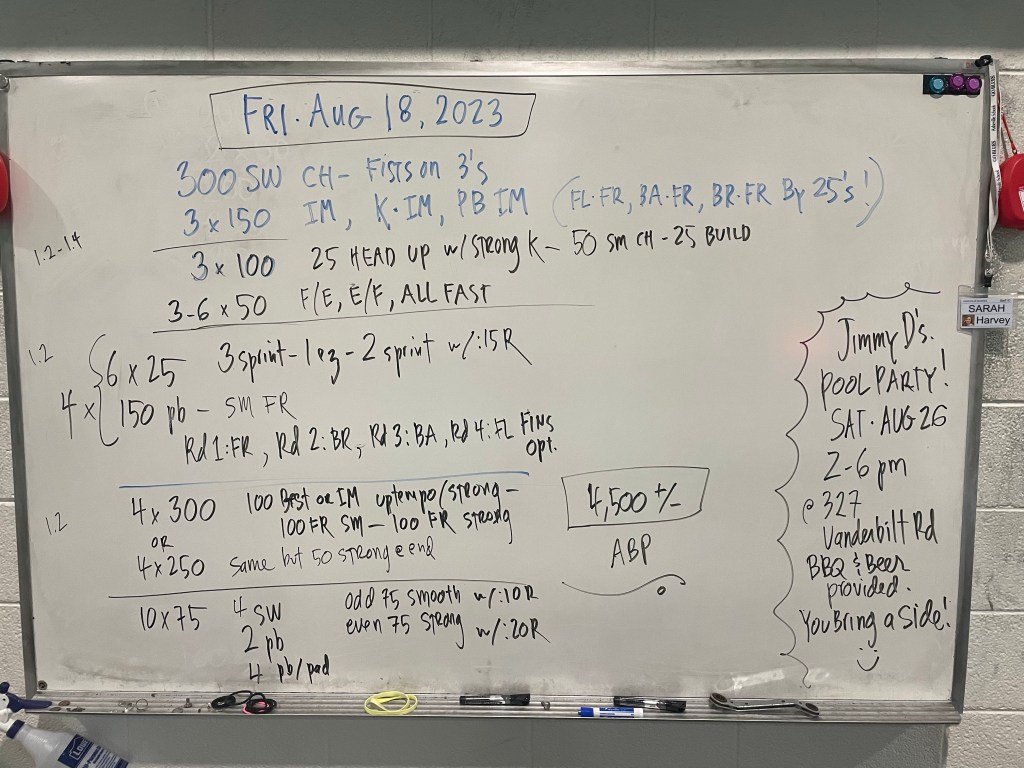 FRI. AUG 18, 2023
300 SW CH - Fists on 3's
3 x 150 IM, K·IM, PB IM (FL·FR, BA·FR, BR·FR By 25's!)
1.2-1.4
3 x 100 25 HEAD UP w/ strong K - 50 sm CH - 25 BUILD
3-6 x 50 F/E, E/F, ALL FAST
1.2
4 x { 6 x 25 3 sprint - 1 ez - 2 sprint w/:15R
150 pb - SM FR
Rd 1: FR, Rd 2: BR, Rd 3: BA, Rd 4: FL FINS opt.
1.2
4 x 300 100 Best or IM uptempo/strong -
100 FR SM - 100 FR strong
OR
4 x 250 Same but 50 strong @ end
4,500 +/-
ABP
10 x 75 4 SW odd 75 smooth w/:10R
2 pb even 75 strong w/:20R
4 pb/pad
Jimmy D's.
POOL PARTY!
SAT. AUG 26
2-6 pm
@ 327
Vanderbilt Rd
BBQ & Beer
provided.
You Bring a Side!
SARAH
Harvey